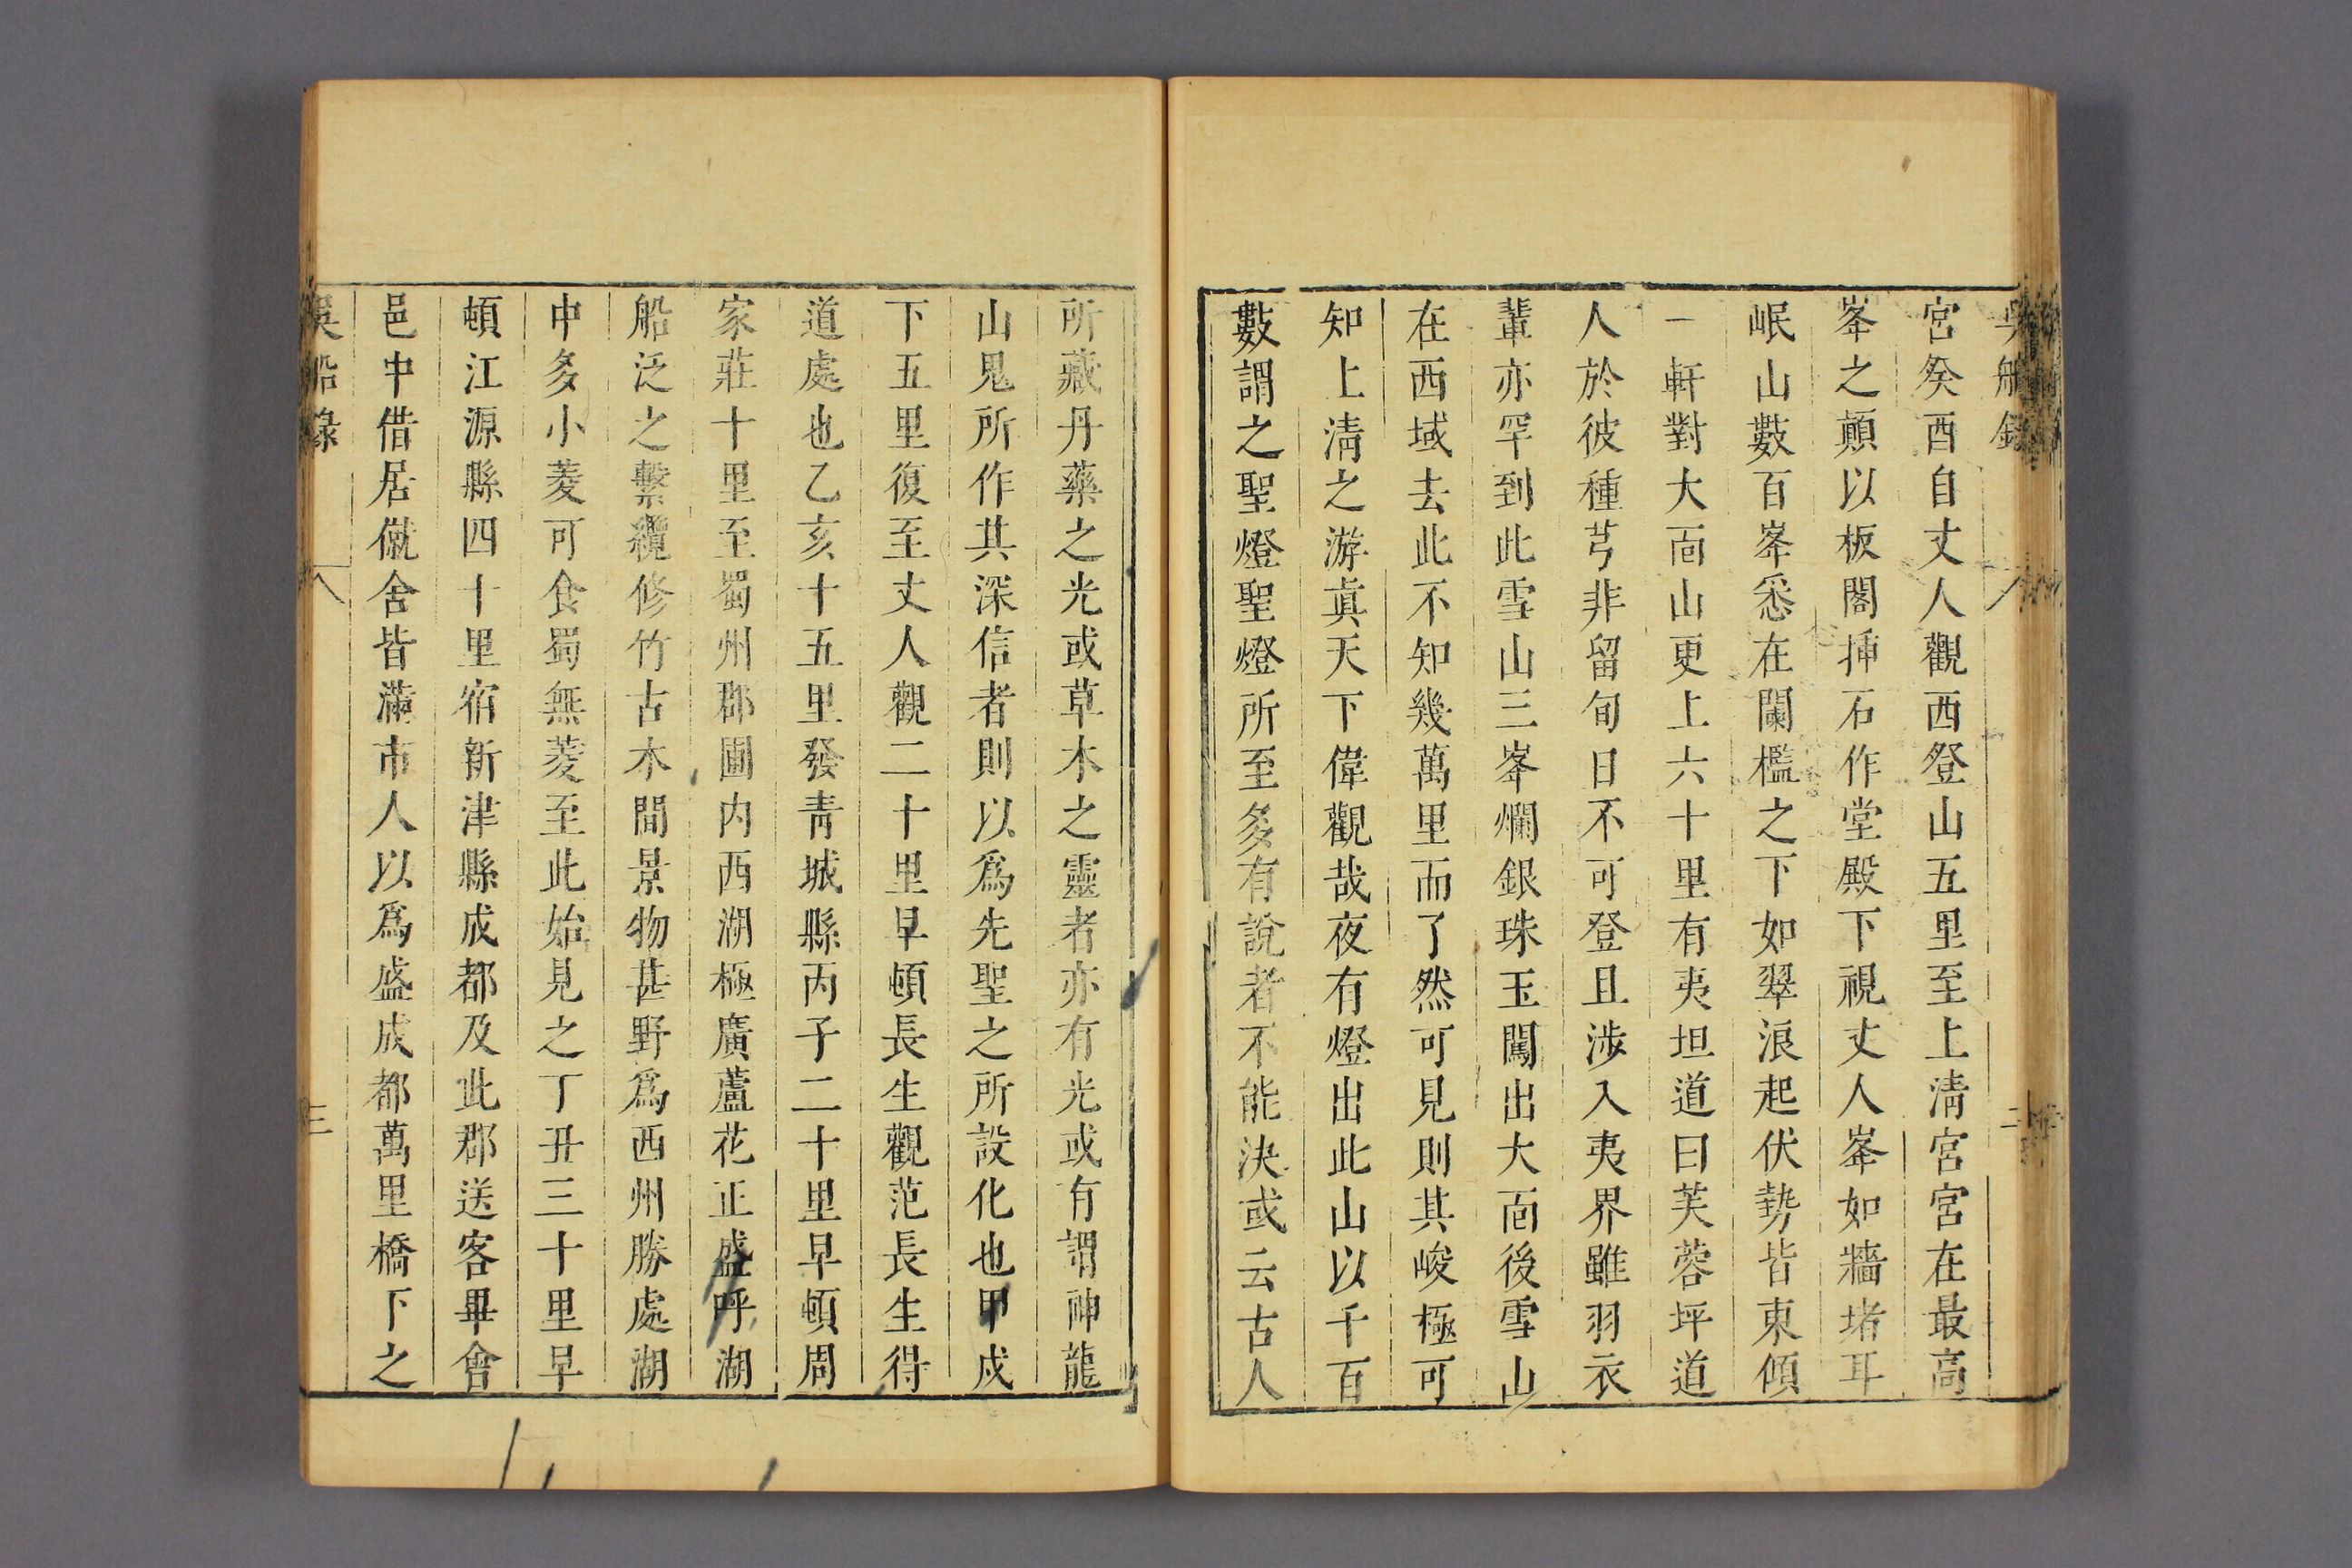 吳船錄
二
宮癸酉自丈人觀西登山五里至上淸宮宮在最高
峯之顛以板閣揷石作堂殿下視丈人峯如牆堵耳
岷山數百峯悉在闌檻之下如翠浪起伏勢皆東傾
一軒對大面山更上六十里有夷坦道曰芙蓉坪道
人於彼種芎非留旬日不可登且涉入夷界雖羽衣
輩亦罕到此雪山三峯爛銀珠玉闖出大面後雪山
在西域去此不知幾萬里而了然可見則其峻極可
知上淸之游眞天下偉觀哉夜有燈出此山以千百
數謂之聖燈聖燈所至多有說者不能決或云古人
所藏丹藥之光或草木之靈者亦有光或有謂神龍
山鬼所作其深信者則以爲先聖之所設化也甲戍
下五里復至丈人觀二十里早頓長生觀范長生得
道處也乙亥十五里發靑城縣丙子二十里早頓周
家莊十里至蜀州郡圃內西湖極廣蘆花正盛呼湖
船泛之繫纜修竹古木間景物甚野爲西州勝處湖
中多小菱可食蜀無菱至此始見之丁丑三十里早
頓江源縣四十里宿新津縣成都及此郡送客畢會
邑中借居僦舍皆滿市人以爲盛成都萬里橋下之
吳船錄
三